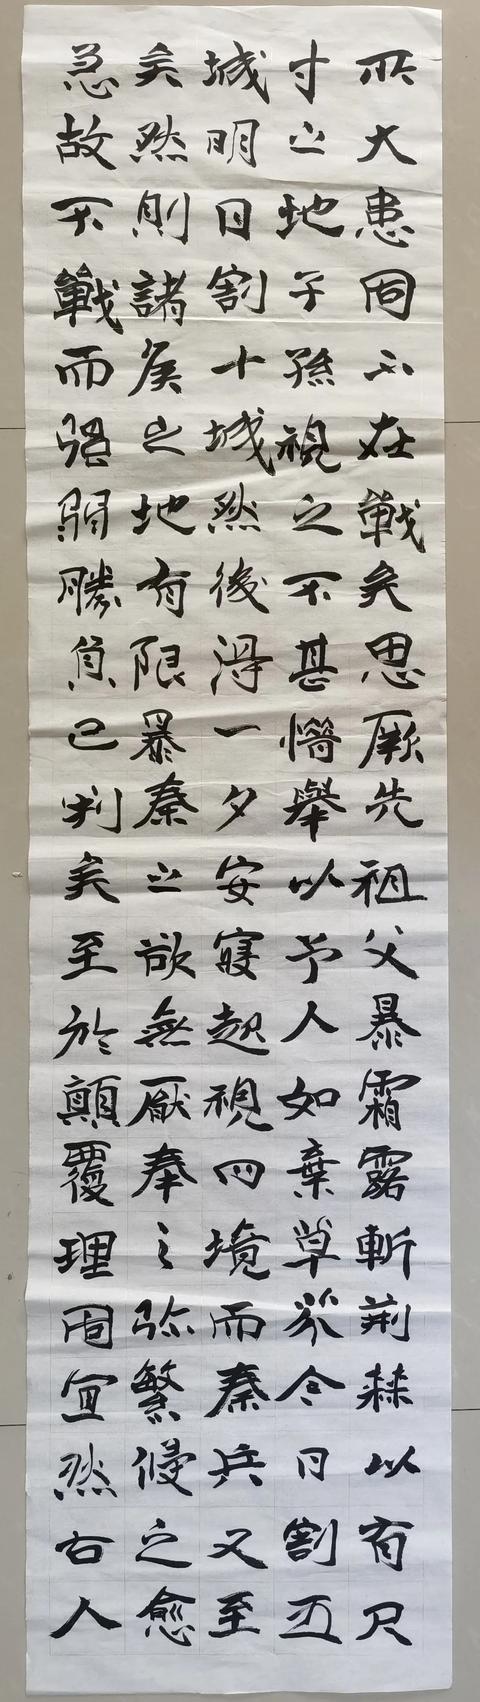 所大患固不在戰矣思厥先祖父暴霜露斬荊棘以有尺
寸之地子孫視之不甚惜舉以予人如棄草芥今日割五
城明日割十城然後得一夕安寢起視四境而秦兵又至
矣然則諸侯之地有限暴秦之欲無厭奉之弥繁侵之愈
急故不戰而强弱勝負已判矣至於顛覆理固宜然古人